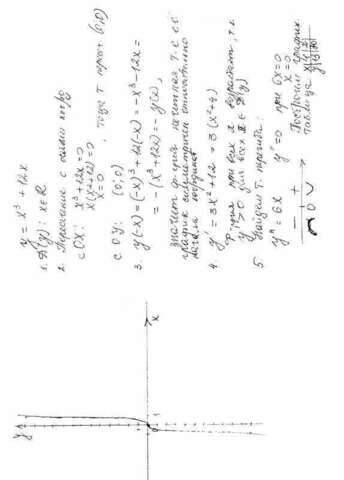 y = x³ + 12x
1. D(y): x∈R
2. Пересечение с осями коорд
с OX: x³ + 12x = 0
x(x²+12) = 0
x = 0, тогда т. перес. (0;0)
с OY: (0;0)
3. y(-x) = (-x)³ + 12(-x) = -x³ - 12x =
= -(x³ + 12x) = -y(x),
значит ф-ция нечетная, т.е. её
график симметричен относительно
начала координат
4. y' = 3x² + 12 = 3(x²+4)
ф-ция при всех x возрастает, т.к.
y' > 0 для всех x ∈ D(y)
5. Найдем т. перегиба:
y'' = 6x y'' = 0 при 6x = 0
x = 0
- +
0
Построим график
таблица x y
y
x
0 1